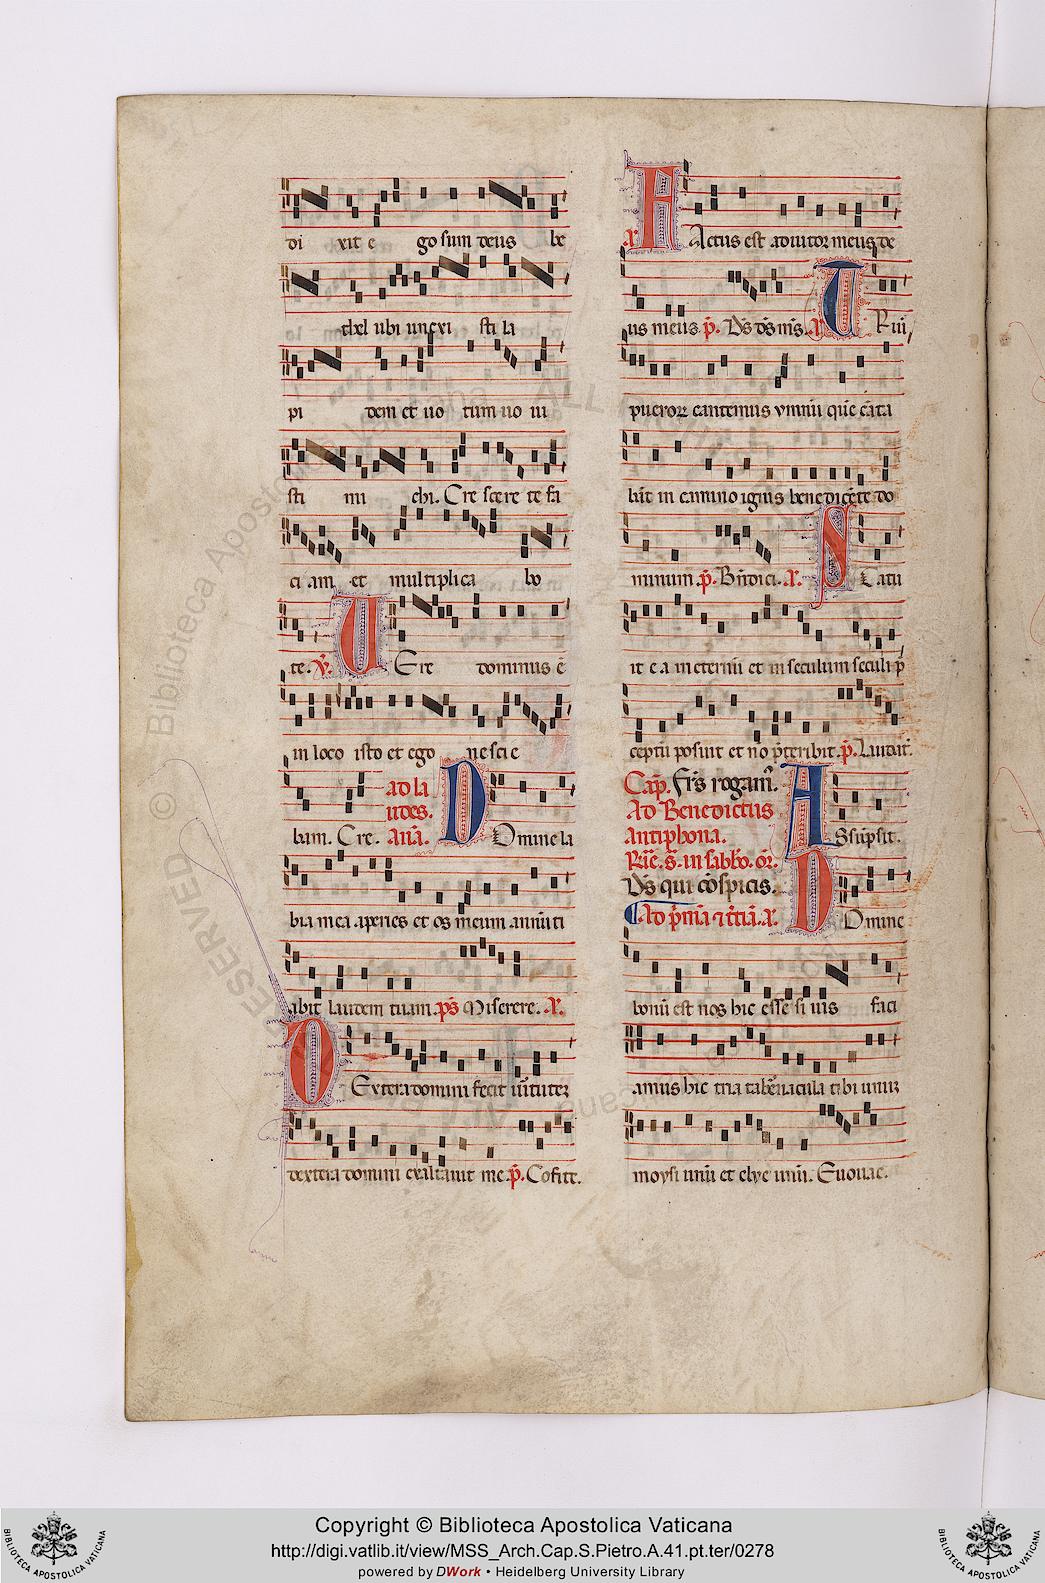 di xit e go sum deus be
thel ubi unxi sti la
pi dem et uo tum uo ui
sti mi chi. Cre scere te fa
ci am et multiplica bo
te. V̄. Vere dominus ē
in loco isto et ego nesci e
bam. Cre. ad la
udes.
Anā. Domine la
bia mea aperies et os meum annūti
abit laudem tuam. ps̄ Miserere. A.
Dextera domini fecit uirtutez
dextera domini exaltauit me. p̄. Cōfite.
A. Factus est adiutor meus de
us meus. p̄. Ds̄ ds̄ ms̄. A. Triū
pueroꝝ cantemus ymnū quē cāta
bāt in camino ignis benedicēte do
minum. p̄. Bn̄dici. A. Statu
it ea in eternū et in seculum seculi p̄
ceptū posuit et nō p̄teribit. p̄. Laudat̄.
Cap̄. Fr̄s rogam̄.
Ad Benedictus
Antiphona. Assūpsit.
Ds̄ qui cōspicis.
Ad p̄mā ⁊ t̄ciā. A. Domine
bonū est nos hic esse si uis faci
amus hic tria tabernacula tibi unuz
moysi unū et elye unū. Euouae.
© Biblioteca Apostolica Vaticana ALL RIGHTS RESERVED
BIBLIOTECA APOSTOLICA VATICANA
Copyright © Biblioteca Apostolica Vaticana
http://digi.vatlib.it/view/MSS_Arch.Cap.S.Pietro.A.41.pt.ter/0278
powered by DWork • Heidelberg University Library
BIBLIOTECA APOSTOLICA VATICANA